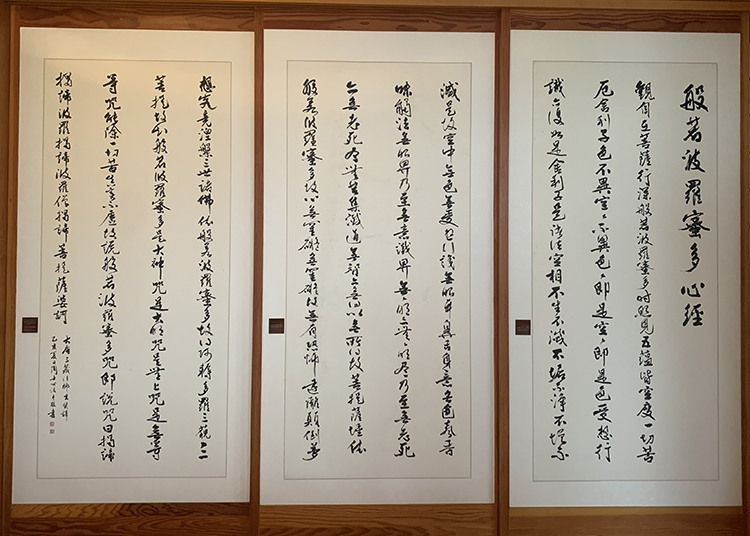 般若波羅蜜多心經
觀自在菩薩行深般若波羅蜜多時照見五蘊皆空度一切苦
厄舍利子色不異空〻不異色〻即是空〻即是色受想行
識亦復如是舍利子是諸法空相不生不滅不垢不淨不增不
減是故空中無色無受想行識無眼耳鼻舌身意無色聲香
味觸法無眼界乃至無意識界無〻明亦無〻明盡乃至無老死
亦無老死盡無苦集滅道無智亦無得以無所得故菩提薩埵依
般若波羅蜜多故心無罣礙無罣礙故無有恐怖遠離顛倒夢
想究竟涅槃三世諸佛依般若波羅蜜多故得阿耨多羅三藐三
菩提故知般若波羅蜜多是大神咒是大明咒是無上咒是無等
等咒能除一切苦真實不虛故說般若波羅蜜多咒即說咒曰揭諦
揭諦波羅揭諦波羅僧揭諦菩提薩婆訶
大唐三藏法師玄奘譯
己亥夏日 書